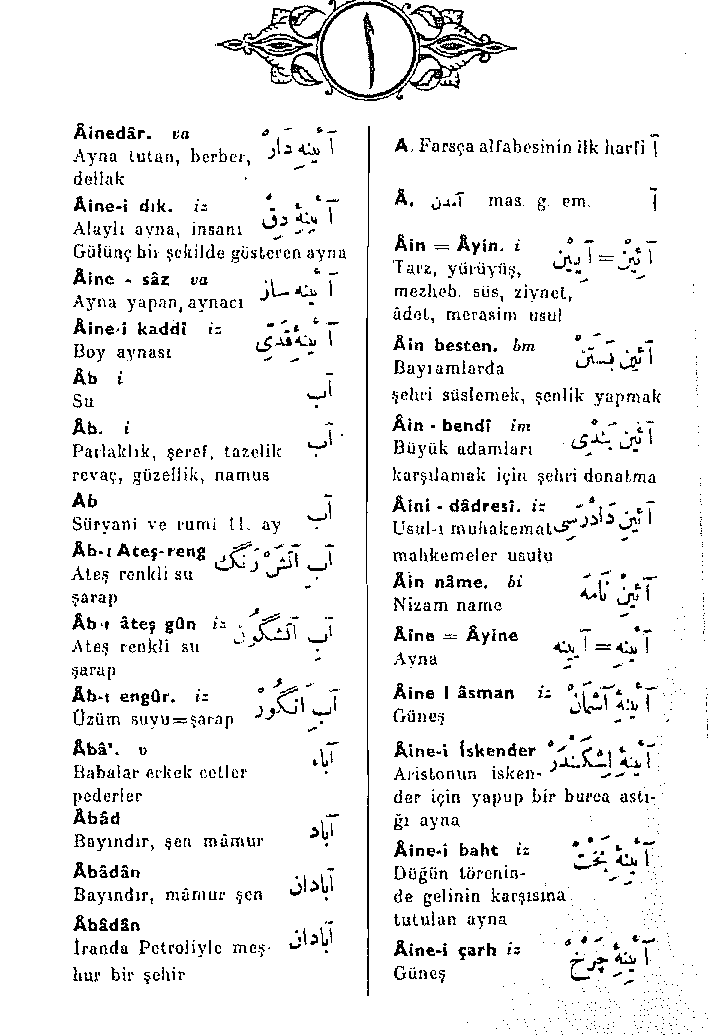 ا
A. Farsça alfabesinin ilk harfi آ
Â. آمدن mas. g. em. آ
Âin = Âyin. i آئین = آیین
Tarz, yürüyüş,
mezheb, süs, ziynet,
âdet, merasim usul
Âin besten. bm آئین بستن
Bayramlarda
şehri süslemek, şenlik yapmak
Âin - bendî im آئین بندی
Büyük adamları
karşılamak için şehri donatma
Âini - dâdresî. iz آئین دادرسی
Usul-ı muhakemat
mahkemeler usulu
Âin nâme. bi آئین نامه
Nizam name
Âine = Âyine آئینه = آیینه
Ayna
Âine I âsman iz آئینه آسمان
Güneş
Âine-i İskender آئینه اسکندر
Aristonun isken-
der için yapup bir burca astı-
ğı ayna
Âine-i baht iz آئینه بخت
Düğün törenin-
de gelinin karşısına
tutulan ayna
Âine-i çarh iz آئینه چرخ
Güneş
Âinedâr. va آئینه دار
Ayna tutan, berber,
dellak
Âine-i dık. iz آئینه دق
Alaylı ayna, insanı
Gülünç bir şekilde gösteren ayna
Âine - sâz va آئینه ساز
Ayna yapan, aynacı
Âine-i kaddî iz آئینه قدی
Boy aynası
Âb i آب
Su
Âb. i آب
Parlaklık, şeref, tazelik
revaç, güzellik, namus
Ab آب
Süryani ve rumi 11. ay
Âb-ı Ateş-reng آب آتش رنگ
Ateş renkli su
şarap
Âb-ı âteş gûn iz آب آتشگون
Ateş renkli su
şarap
Âb-ı engûr. iz آب انگور
Üzüm suyu=şarap
Âbâ'. v آباء
Babalar erkek cetler
pederler
Âbâd آباد
Bayındır, şen mâmur
Âbâdân آبادان
Bayındır, mâmur şen
Âbâdân آبادان
İranda Petroliyle meş-
hur bir şehir